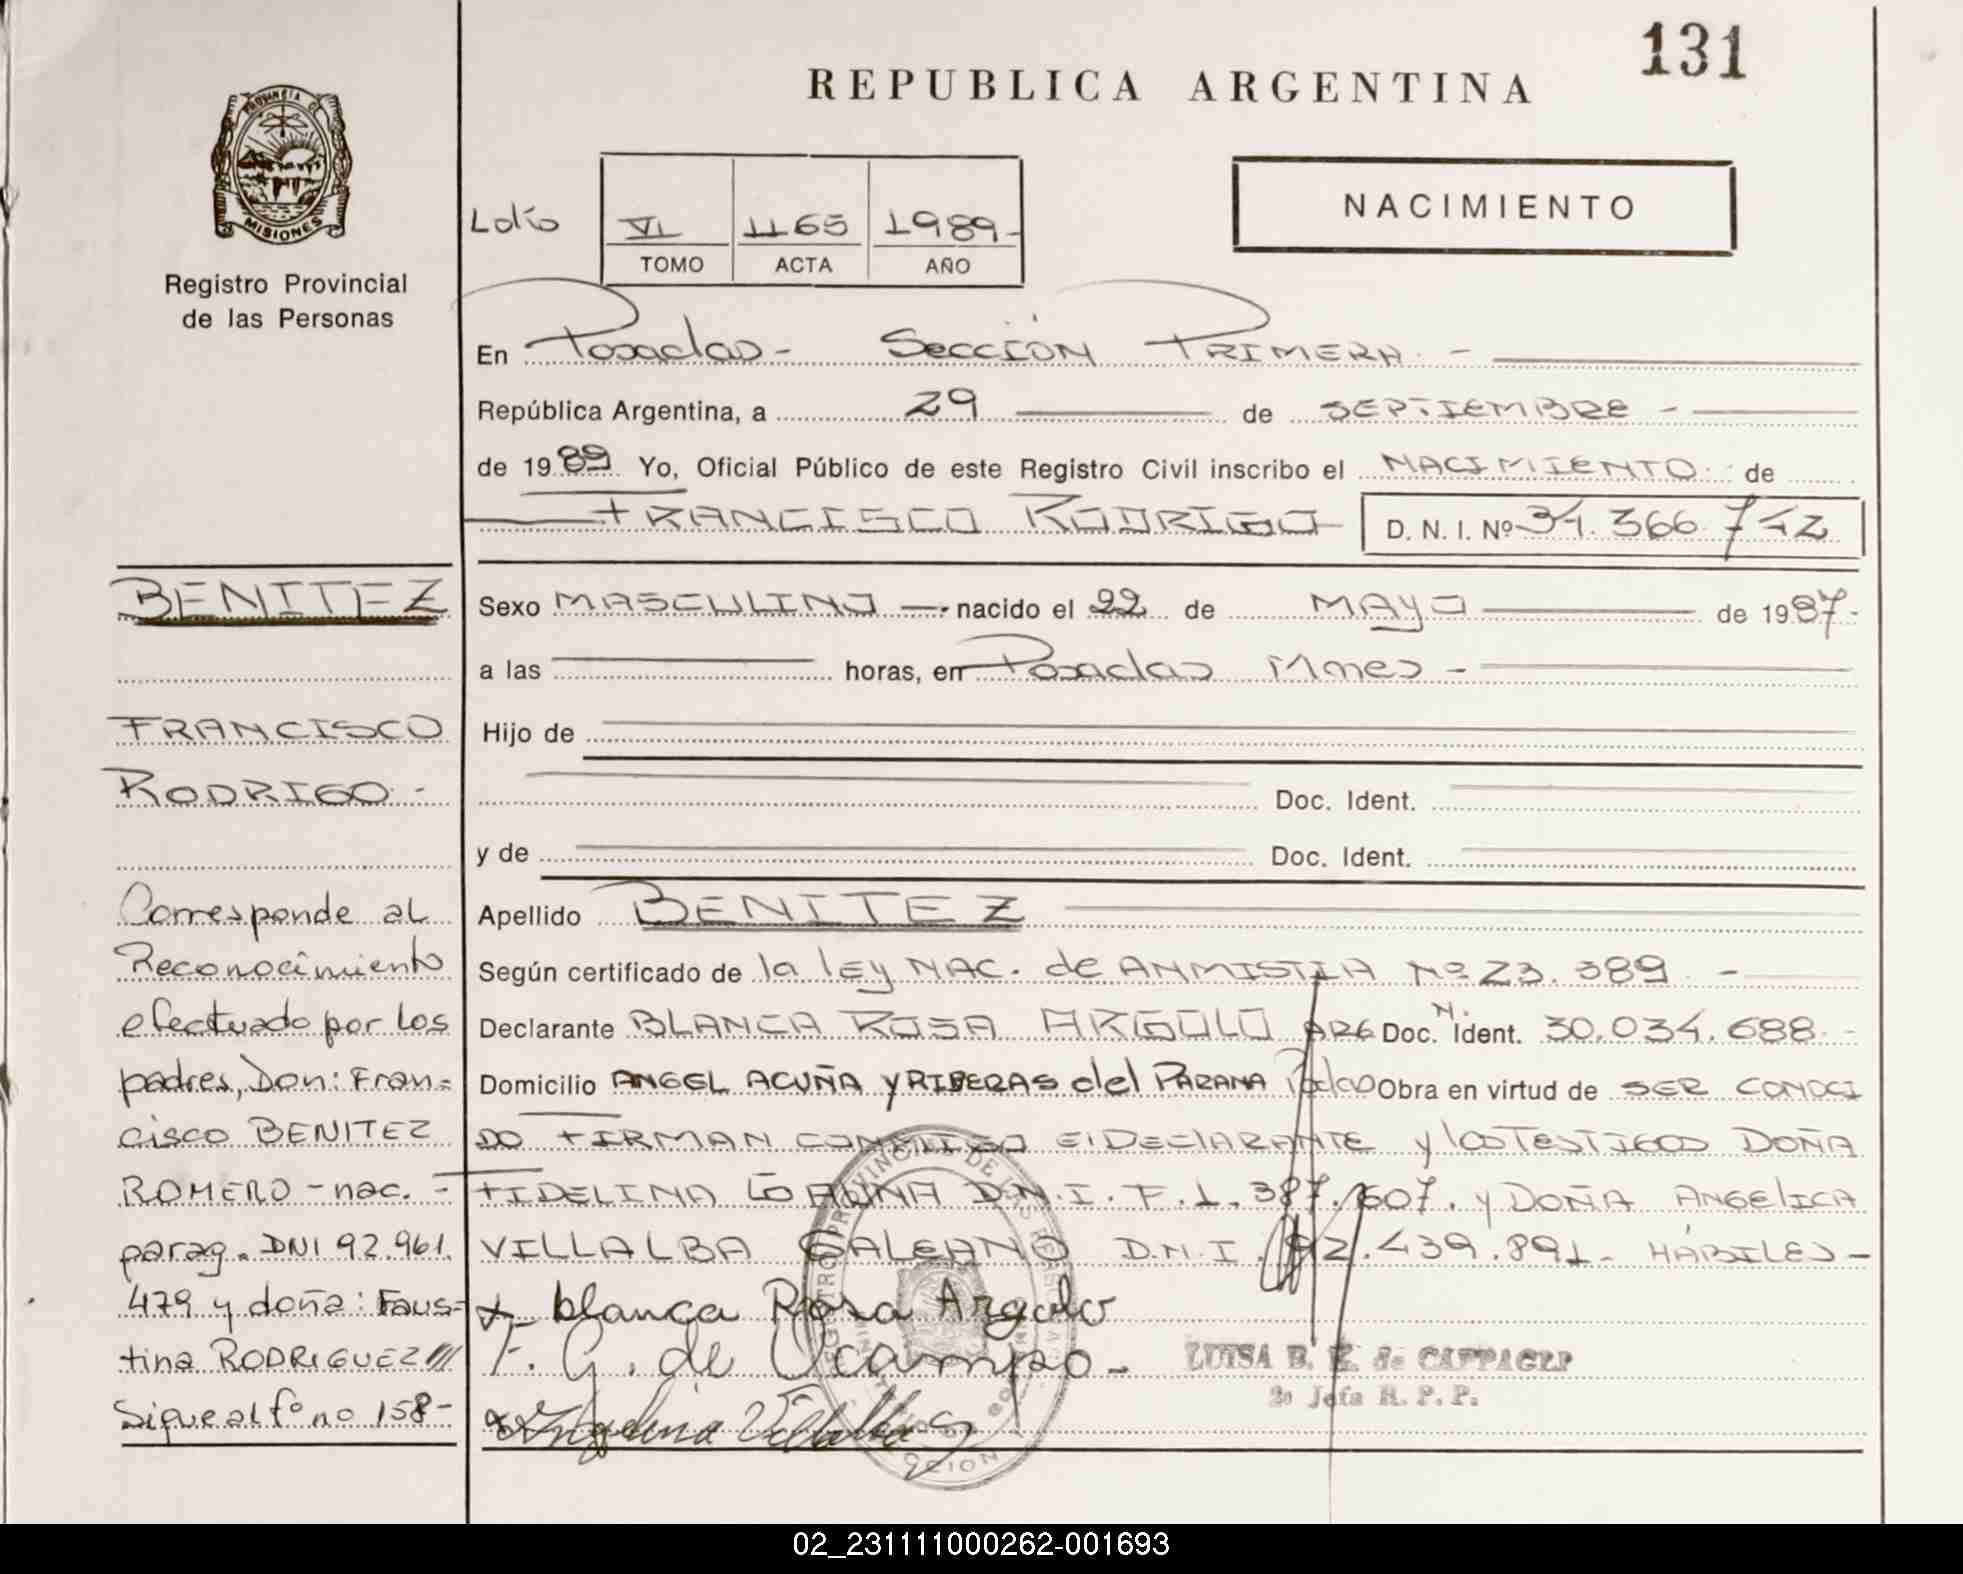 131
REPUBLICA ARGENTINA
PROVINCIA D
MISIONES
Registro Provincial
de las Personas
VI 1165 1989-
TOMO ACTA AÑO
NACIMIENTO
En Posadas- Sección PRIMERA. -
República Argentina, a 29 de SEPTIEMBRE -
de 1989 Yo, Oficial Público de este Registro Civil inscribo el NACIMIENTO de
FRANCISCO RODRIGO D. N. I. Nº 34.366.742
Sexo MASCULINO nacido el 22 de MAYO de 1987-
a las horas, en Posadas Mnes -
Hijo de
Doc. Ident.
y de Doc. Ident.
Apellido BENITEZ
Según certificado de la ley NAC. de ANMISTIA Nº 23.389 -
Declarante BLANCA ROSA ARGOLO ARG Doc. N. Ident. 30.034.688 -
Domicilio ANGEL ACUÑA y RIBERAS del PARANA Pdas Obra en virtud de SER CONOCI
DO FIRMAN CONMIGO El DEClARANTE y los TESTIGOS DOÑA
FIDELINA D.N.I. F.1.387.607. y DOÑA ANGELICA
VILLALBA GALEANO D.N.I. 92.439.891- HÁBILES-
blanca Rosa Argolo
F. G. de Ocampo-
Villalba
LUISA B.
2º Jefa R. P. P.
BENITEZ
FRANCISCO
RODRIGO -
Corresponde al
Reconocimiento
efectuado por los
padres, Don: Fran=
cisco BENITEZ
ROMERO - nac. -
parag. DNI 92.961.
479 y doña: Faus-
tina RODRIGUEZ ///
Sigue al fº no 158-
02_231111000262-001693